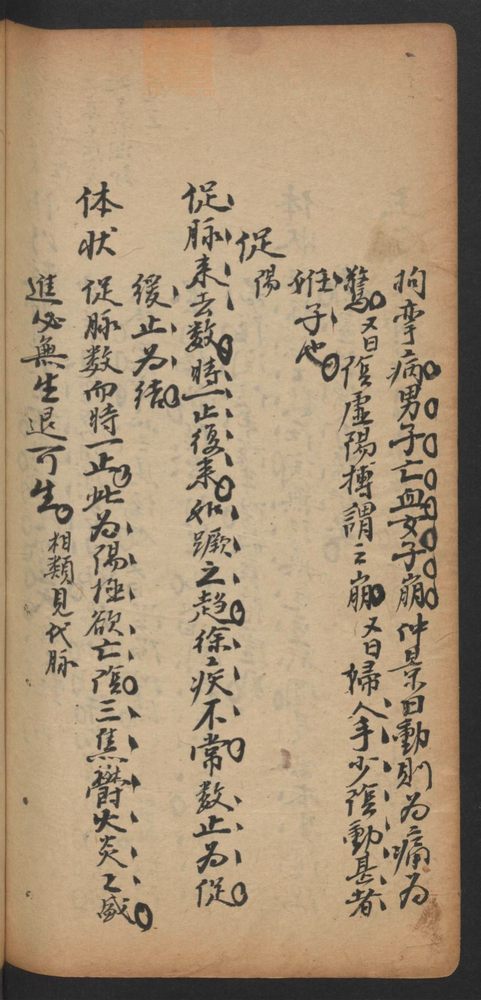 拘挛病男子亡血女子崩仲景曰動則为痛为
驚又曰陰虛陽搏謂之崩又曰婦人手少陰動甚者
姙子也
促
陽
促脉来去数時一止復来如蹶之趋徐ミ疾不常数止为促
緩止为结
体状
促脉数而時一止此为陽极欲亡陰三焦欝火炎ミ盛
進必無生退可生 相類見代脉